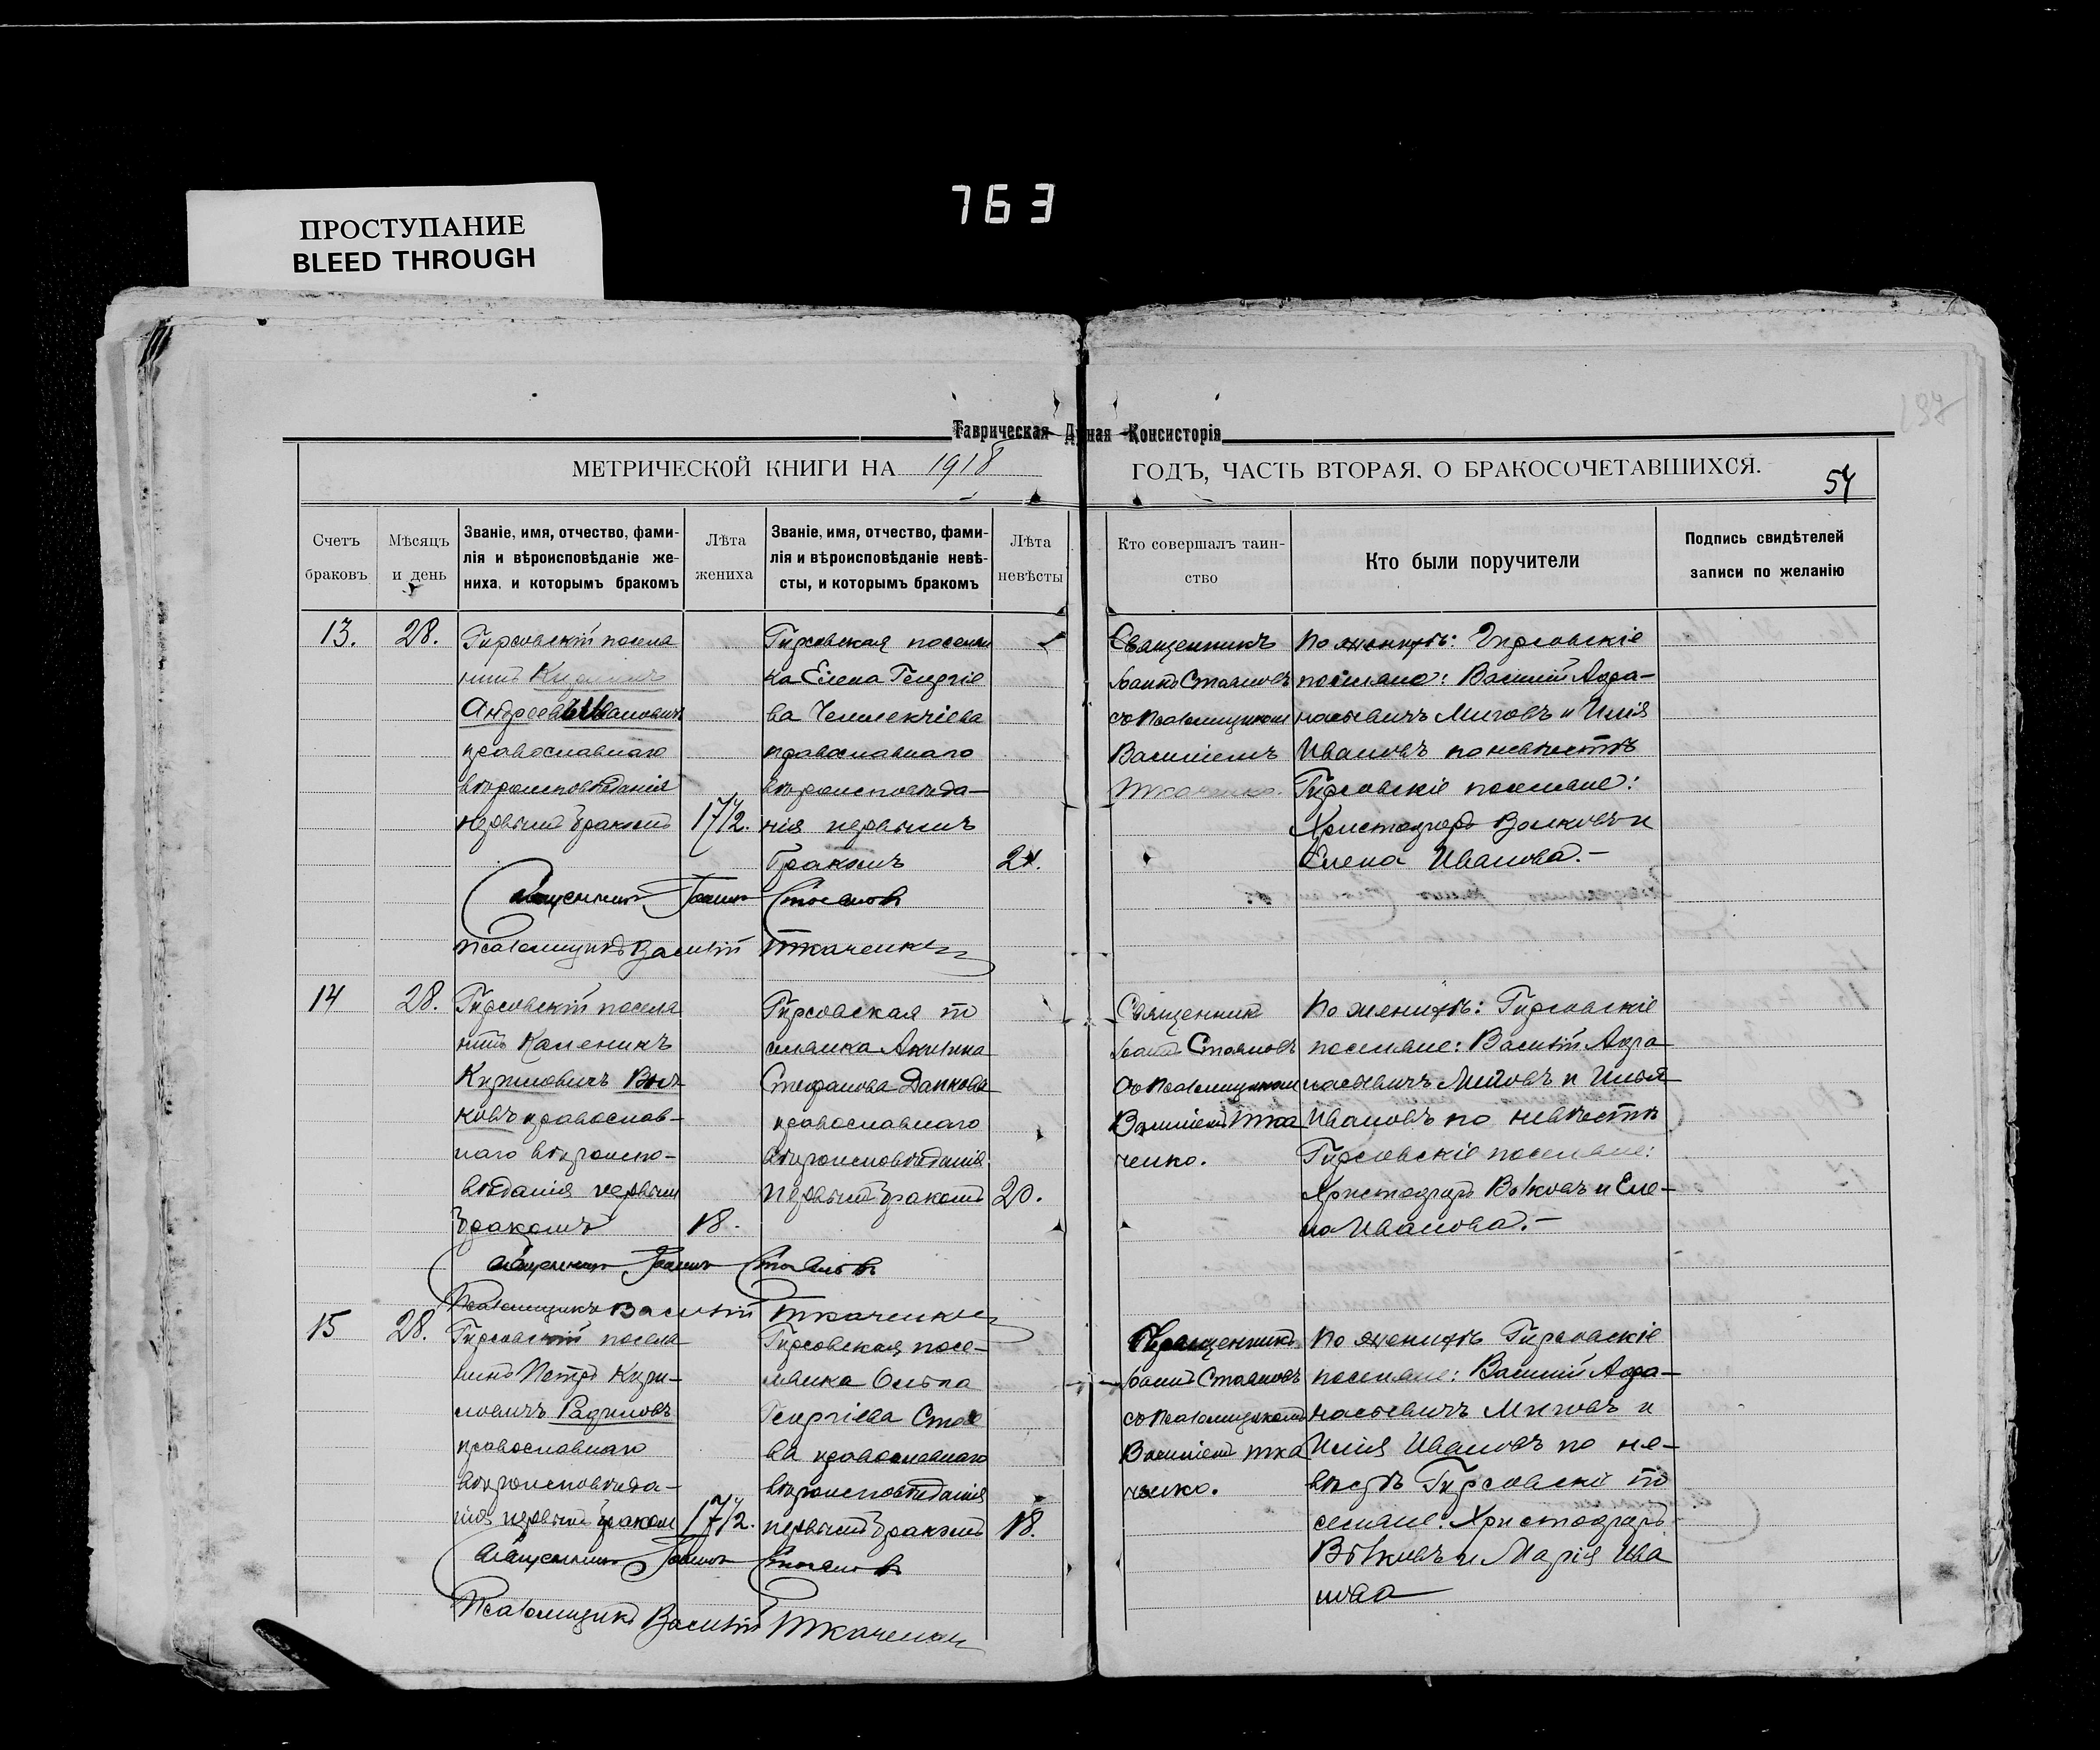 763
ПРОСТУПАНИЕ
BLEED THROUGH
Таврическая Д ная Консисторія
МЕТРИЧЕСКОЙ КНИГИ НА 1918 ГОДЪ, ЧАСТЬ ВТОРАЯ, О БРАКОСОЧЕТАВШИХСЯ.
54
Счетъ браковъ
Мѣсяцъ и день
Званіе, имя, отчество, фами-
лія и вѣроисповѣданіе же-
ниха, и которымъ бракомъ
Лѣта жениха
Званіе, имя, отчество, фами-
лія и вѣроисповѣданіе невѣ-
сты, и которымъ бракомъ
Лѣта невѣсты
Кто совершалъ таин-
ство
Кто были поручители
Подпись свидѣтелей
записи по желанію
13.
28.
Гирсовскій посела
нинъ
Андреевъ Ивановичъ
православнаго
вѣроисповѣданія
первымъ бракомъ
17 1/2.
Гирсовская поселян
ка Елена Георгіе
ва Челпекчіева
православнаго
вѣроисповѣда-
нія первымъ
бракомъ
Священникъ
Іоаннъ Стояновъ
съ Псаломщикомъ
Василіемъ
Ткаченко.
По женихѣ: Гирсовскіе
поселяне: Василій Афа-
насьевичъ Миговъ и Илія
Ивановъ по невѣстѣ
Гирсовскіе поселяне:
Христофоръ Волковъ и
Елена Иванова.-
Священникъ Іоаннъ Стояновъ
Псаломщикъ Василій Ткаченко
14
28.
Гирсовскій посела
нинъ Каленикъ
Кириловичъ Вол-
ковъ православ-
наго вѣроиспо-
вѣданія первымъ
бракомъ
18.
Гирсовская по
селянка Акилина
Стефанова Данкова
православнаго
вѣроисповѣданія
первымъ бракомъ
20.
Священникъ
Іоаннъ Стояновъ
съ Псаломщикомъ
Василіемъ Тка
ченко.
По женихѣ: Гирсовскіе
поселяне: Василій Афа-
насьевичъ Миговъ и Илья
Ивановъ по невѣстѣ
Гирсовскіе поселяне:
Христофоръ Волковъ и Еле-
на Иванова.-
Священникъ Іоаннъ Стояновъ
Псаломщикъ Василій Ткаченко
15
28.
Гирсовскій посела
нинъ Петръ Кири-
ловичъ Радиловъ
православнаго
вѣроисповѣда-
нія первымъ бракомъ
17 1/2.
Гирсовская посе-
лянка Ольга
Георгіева Стое
ва православнаго
вѣроисповѣданія
первымъ бракомъ
18.
Священникъ
Іоаннъ Стояновъ
съ Псаломщикомъ
Василіемъ Тка
ченко.
По женихѣ Гирсовскіе
поселяне: Василій Афа-
насьевичъ Миговъ и
Илія Ивановъ по не-
вѣстѣ Гирсовскіе по
селяне: Христофоръ
Волковъ и Марія Ива
нова
Священникъ Іоаннъ Стояновъ
Псаломщикъ Василій Ткаченко